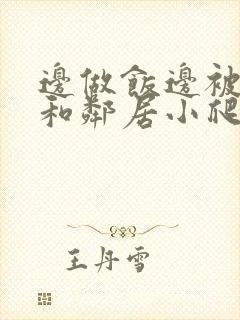 邊做飯邊被
和鄰居小爬
王丹雪